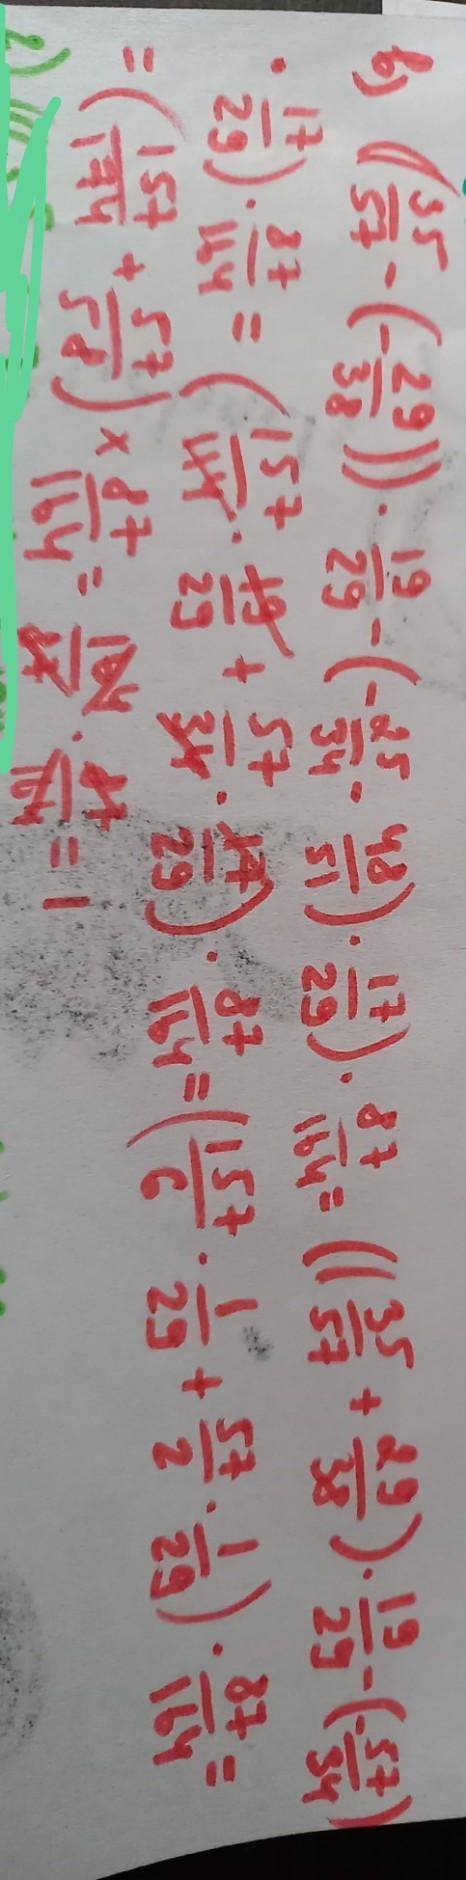 b) ((35/57 - (-29/38)) · 19/29 - (-25/34 - 48/51) · 17/29) · 87/164 = ((35/57 + 29/38) · 19/29 - (-57/34)
· 17/29) · 87/164 = (157/114 · 19/29 + 57/34 · 17/29) · 87/164 = (157/6 · 1/29 + 57/2 · 1/29) · 87/164 =
= (157/174 + 57/58) × 87/164 = 164/87 · 87/164 = 1